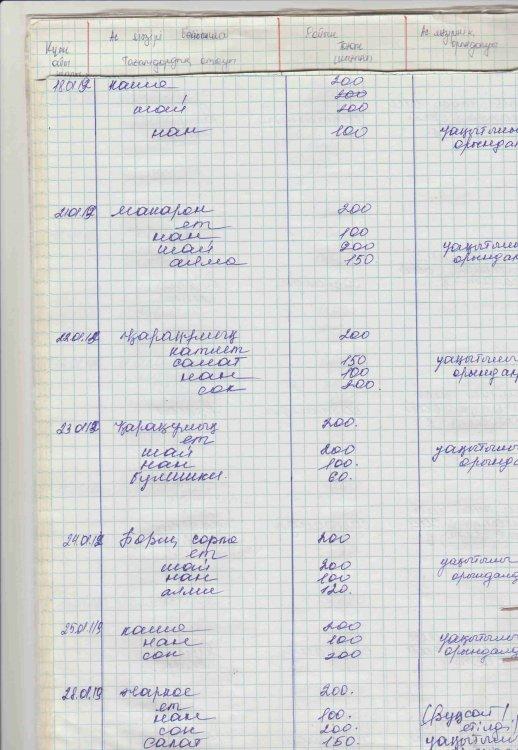 Күні Ас мәзірі бойынша Бойын Ас мәзірінің
айы Тағамдардың атауы Тағам орындалуы
18.01.19 каша 200
200
шай 200
нан 100 уақытылы
орындал
21.01.19 макарон 200
ет
нан 100
шай 200 уақытылы
алма 150 орындал
22.01.19 Қарақұмық 200
катлет
салат 150 уақытылы
нан 100 орындал
сок 200.
23.01.19 Қарақұмық 200.
ет
шай 200 уақытылы
нан 100. орындал
булышки. 60.
24.01.19 Борщ, сорпа 200
ет
шай 200 уақытылы
нан 100 орындалд
алма 120.
25.01.19 каша 200
нан 100 уақытылы
сок 200 орындалд
28.01.19 жаркое 200.
ет
нан 100.
сок 200. етілді
салат 150. уақытылы